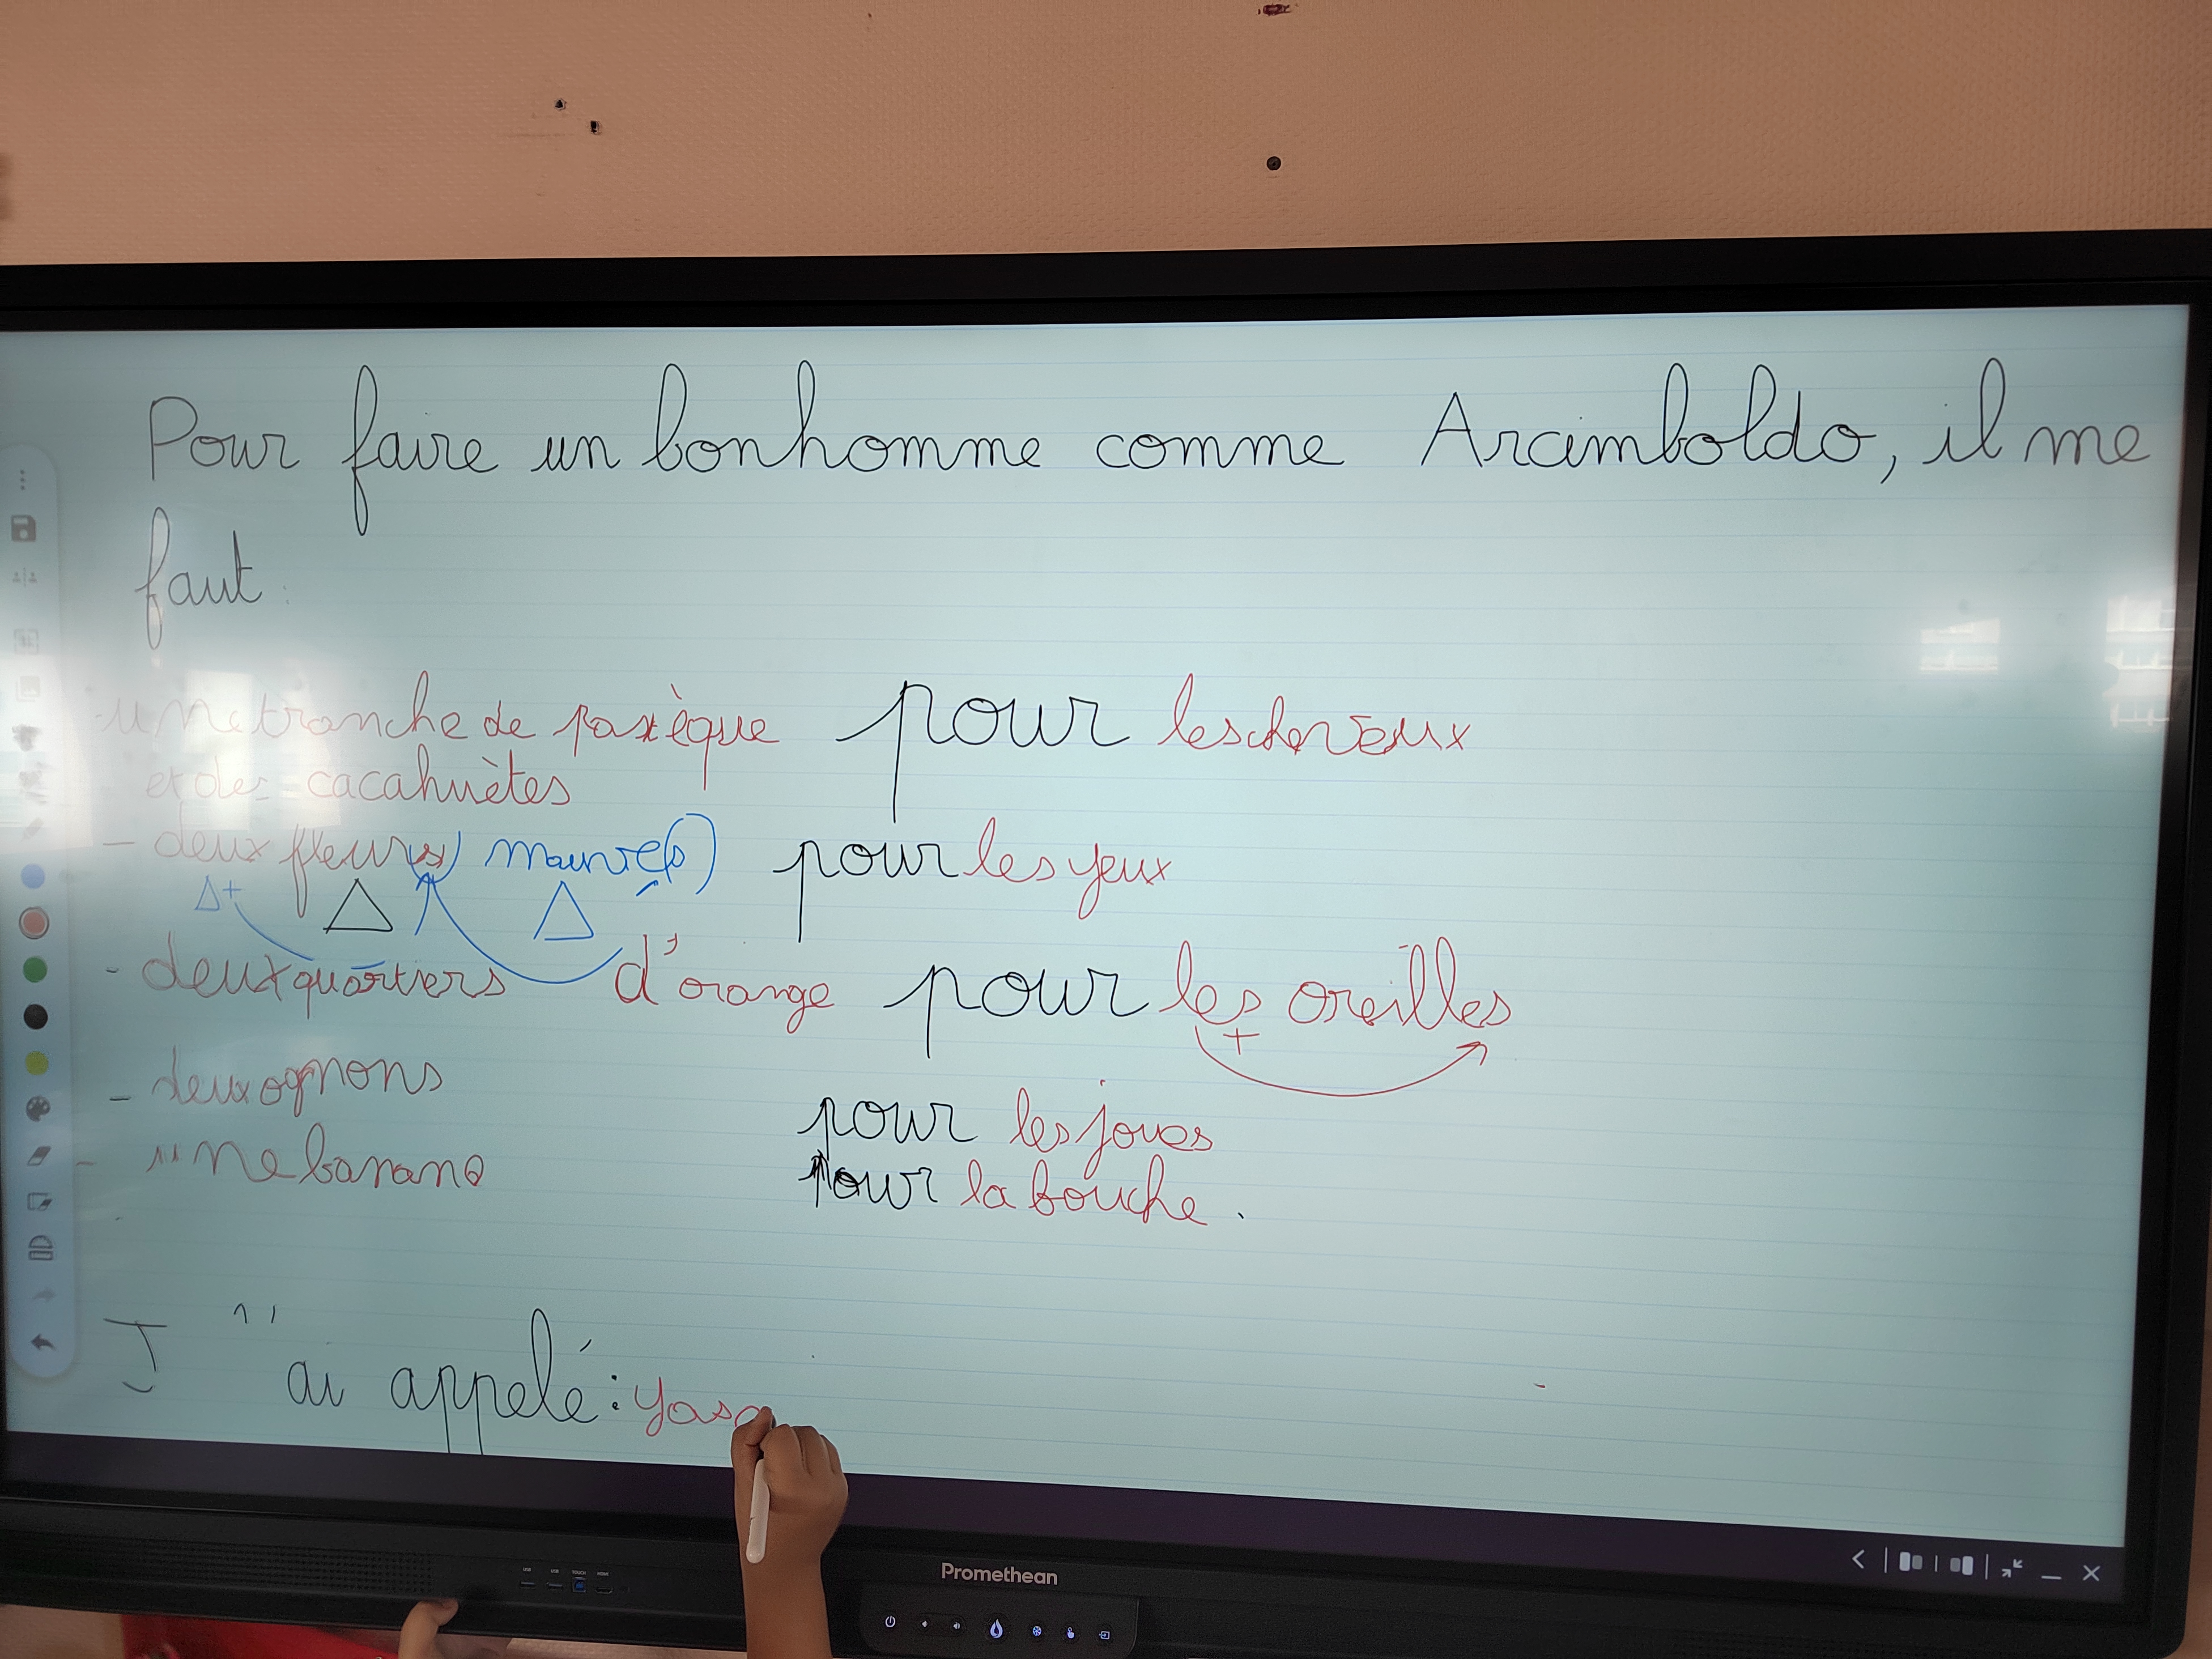 Pour faire un bonhomme comme Arcimboldo, il me
faut :
- une tranche de pastèque pour les cheveux
et des cacahuètes
- deux fleurs mauves pour les yeux
- deux quartiers d'orange pour les oreilles
+
- deux ognons pour les joues
- une banane pour la bouche.
J'ai appelé :
Promethean